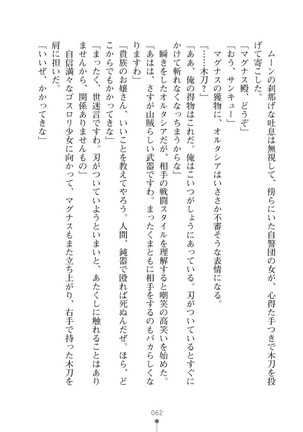 ムーンの刹那げな吐息は無視して、傍らにいた自警団の女が、心得た手つきで木刀を投
げて寄こした。
「マグナス殿、どうぞ」
「おう、サンキュー」
マグナスの獲物に、オルタシアはいささか不審そうな表情になる。
「……木刀?」
「ああ、俺の得物はこれだ。俺はこいつがしょうにあっている。刃がついているとすぐに
かけて斬れなくなっちまうからな」
瞬きをしたオルタシアだが、相手の戦闘スタイルを理解すると嘲笑の高笑いを始めた。
「あはは、さすが山賊らしい武器ですわ。まったくまともに相手をするのもバカらしくな
りますわね」
「貴族のお嬢さん、いいことを教えてやろう。人間、鈍器で殴れば死ぬんだぜ。ほら、ど
こからでもかかってきな」
「まったく、世迷言ですわ。刃がついていようといまいと、あたくしに触れることはあり
ませんから、関係ありませんもの」
自信満々なゴスロリ少女に向かって、マグナスもまた立ち上がり、右手で持った木刀を
肩に担いだ。
「いいぜ、かかってきな」
062